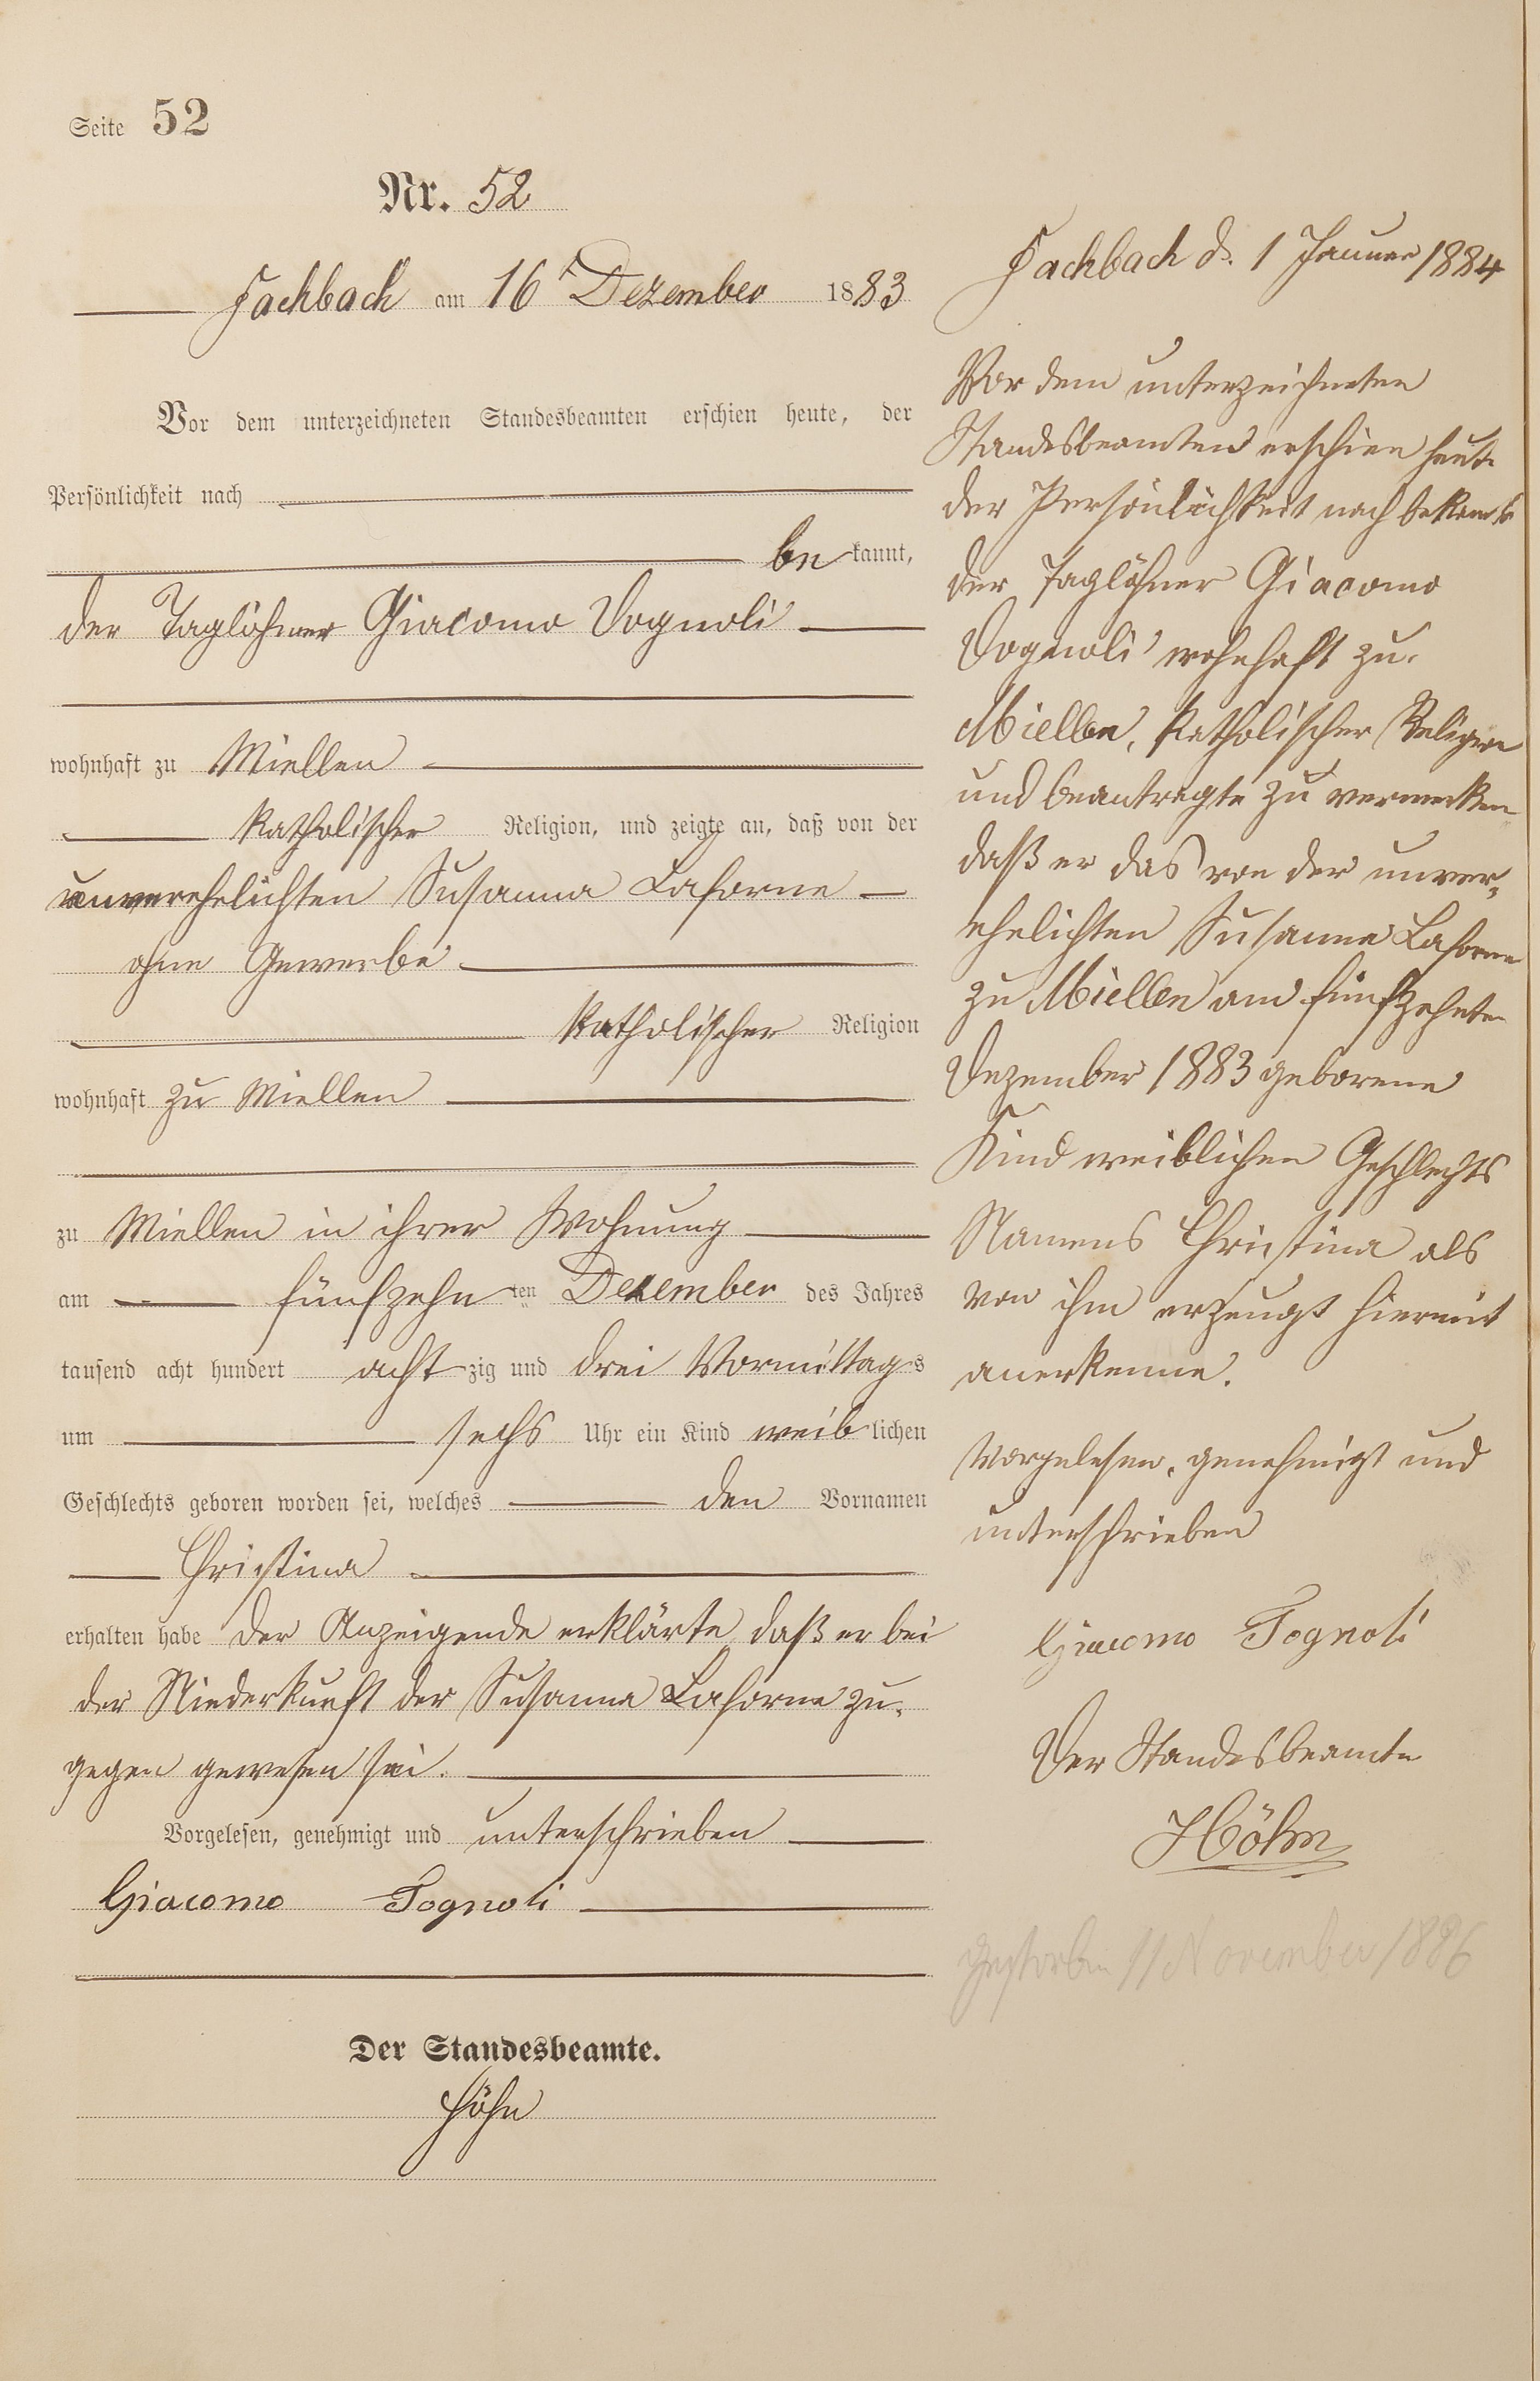 Seite 52
Nr. 52
Fachbach am 16 Dezember 1883
Vor dem unterzeichneten Standesbeamten erschien heute, der
Persönlichkeit nach
bekannt,
der Taglöhner Giacomo Dognoli
wohnhaft zu Miellen
katholischer Religion, und zeigte an, daß von der
unverehelichten Susanna Lahorne
ohne Gewerbe
katholischer Religion
wohnhaft zu Miellen
zu Miellen in ihrer Wohnung
am fünfzehnten Dezember des Jahres
tausend acht hundert achtzig und drei Vormittags
um sechs Uhr ein Kind weiblichen
Geschlechts geboren worden sei, welches den Vornamen
Christina
erhalten habe Der Anzeigende erklärte, daß er bei
der Niederkunft der Susanna Lahorne zu-
gegen gewesen sei.
Vorgelesen, genehmigt und unterschrieben
Giacomo Tognoli
Der Standesbeamte.
Höhn
Fachbach d. 1 Januar 1884
Vor dem unterzeichneten
Standesbeamten erschien heute
der Persönlichkeit nach bekannt
der Taglöhner Giacomo
Dognoli wohnhaft zu
Miellen, katholischer Religion
und beantragte zu vermerken
daß er das von der unver-
ehelichten Susanna Lahorne
zu Miellen am fünfzehnten
Dezember 1883 geborene
Kind weiblichen Geschlechts
Namens Christina als
von ihm erzeugt hiermit
anerkenne.
Vorgelesen, genehmigt und
unterschrieben
Giacomo Tognoli
Der Standesbeamte
Höhn
Gestorben 11 November 1886